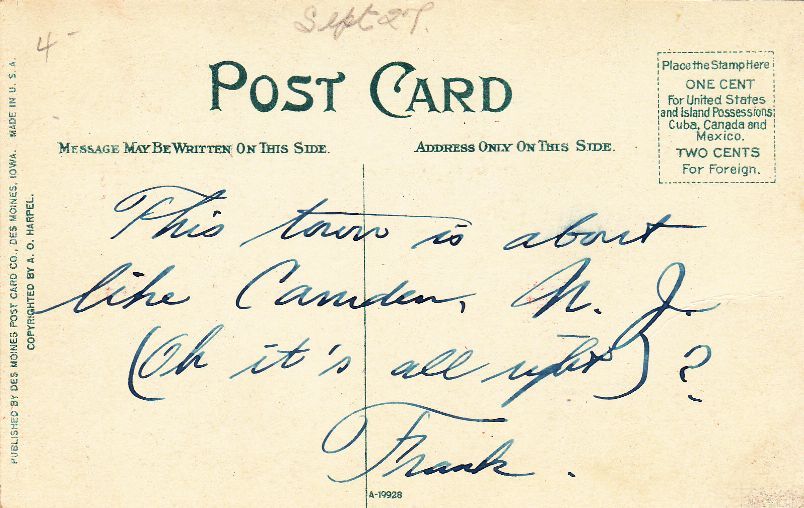 Sept 27.
4-
POST CARD
Place the Stamp Here
ONE CENT
For United States
and Island Possessions
Cuba, Canada and
Mexico.
TWO CENTS
For Foreign.
MESSAGE MAY BE WRITTEN ON THIS SIDE.
ADDRESS ONLY ON THIS SIDE.
This town is about
like Camden, N. J.
(Oh it's all right) ?
Frank.
A-19928
PUBLISHED BY DES MOINES POST CARD CO., DES MOINES, IOWA. MADE IN U. S. A.
COPYRIGHTED BY A. O. HARPEL.